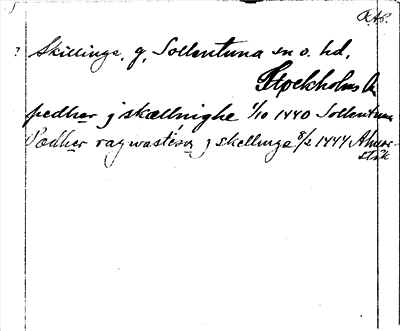 RAp.
? Skillinge, g, Sollentuna sn o. hd,
Stockholms län
pedhar j skællnighe 1/10 1440 Sollentuna
Pædher ragwastəson j skellinge 8/2 1444 Almar-
stäk